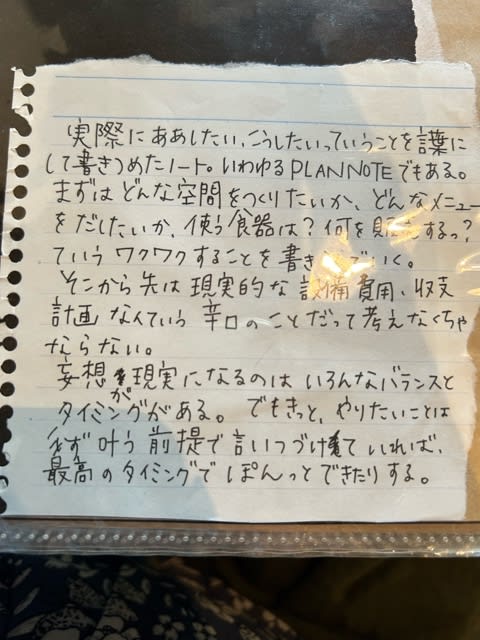 実際にああしたい、こうしたいっていうことを言葉に
して書きつめたノート。いわゆるPLANNOTEでもある。
まずはどんな空間をつくりたいか、どんなメニュー
をだしたいか、使う食器は？何を販売するっ？
ていうワクワクすることを書き
でいく。
そこから先は現実的な設備費用、収支
計画なんていう辛口のことだって考えなくちゃ
ならない。
妄想が現実になるのはいろんなバランスと
タイミングがある。でもきっと、やりたいことは
必ず叶う前提で言いつづけていれば、
最高のタイミングでぽんっとできたりする。